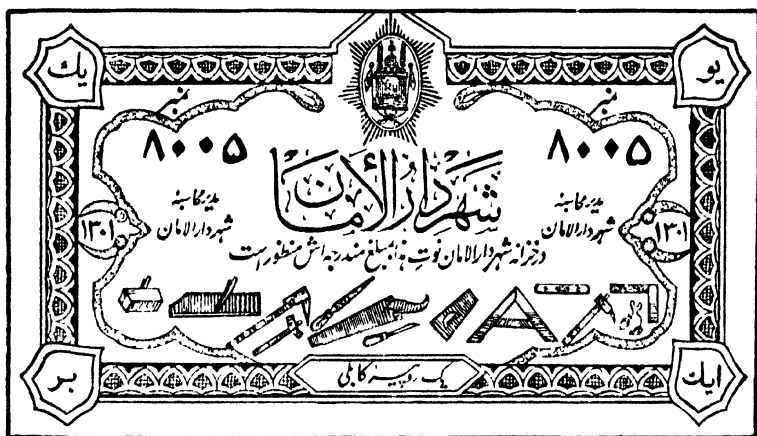 يك
يو
نمبر
نمبر
۸۰۰۵
۸۰۰۵
شهر دار الأمان
مدیر محاسبه
شهر دار الامان
مدیر محاسبه
شهر دار الامان
۱۳۰۱
۱۳۰۱
در خزانه شهر دار الامان نوت هذا بمبلغ مندرجه اش منظور است
بر
یک روپیه کابلی
ایك